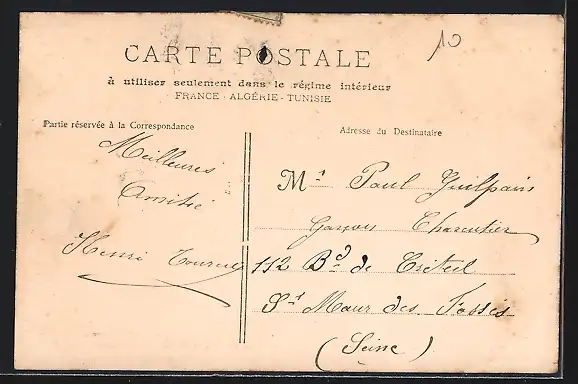 10
CARTE POSTALE
à utiliser seulement dans le régime intérieur
FRANCE - ALGÉRIE - TUNISIE
Partie réservée à la Correspondance
Meilleures
Amitié
Henri
Adresse du Destinataire
Mr Paul
Garçon Charcutier
112 Bd de Créteil
St Maur des Fossés
(Seine)